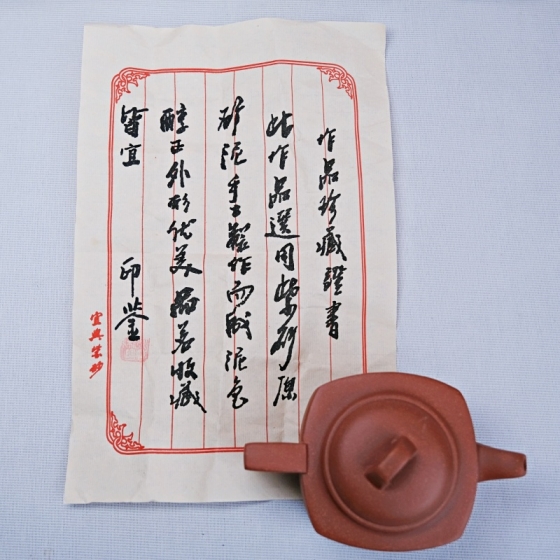 作品珍藏證書
此作品選用紫砂原
矿泥手工製作而成泥色
醇正外形优美品茗收藏
皆宜 印鉴
宜興紫砂